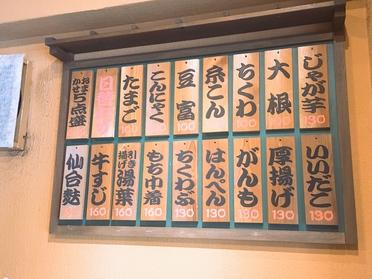 じゃが芋 130
大根
ちくわ
糸こん
豆富 100
こんにゃく
たまご 100
おまかせ5点盛
いいだこ 130
厚揚げ 130
がんも 130
はんぺん 130
ちくわぶ 130
もち巾着 160
引き揚げ湯葉 160
牛すじ 160
仙台麩